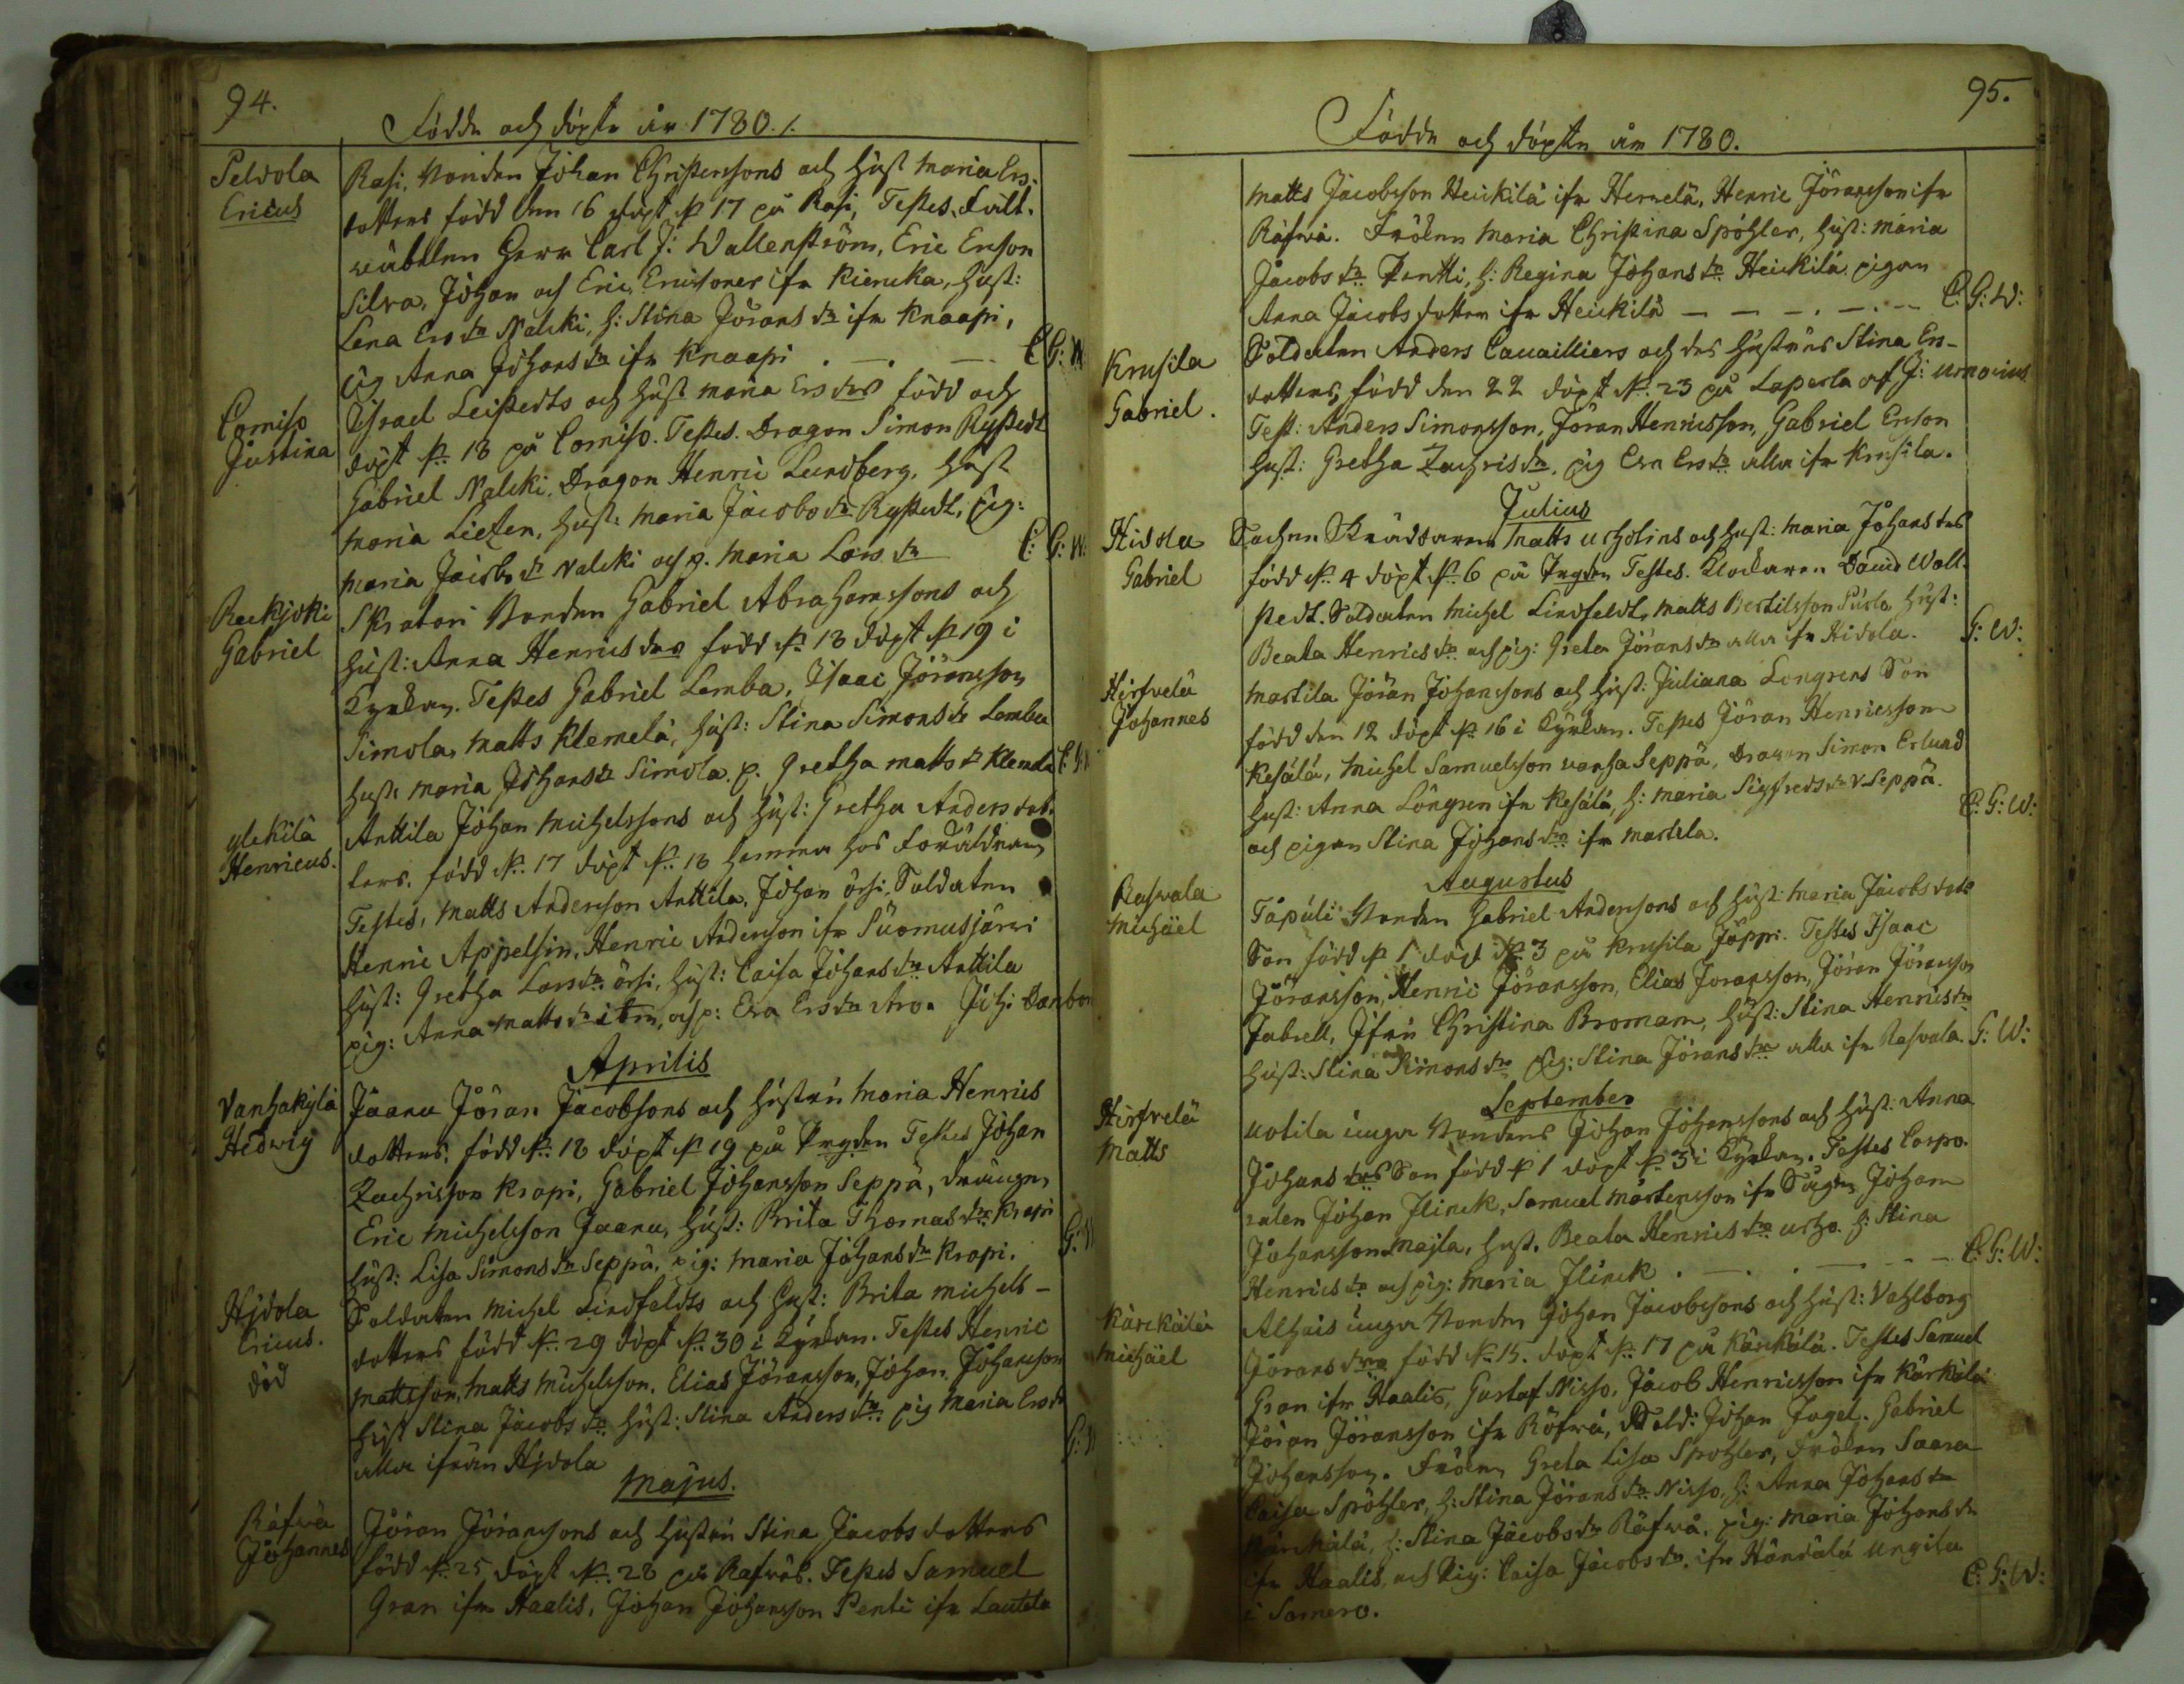 94.
Födde och döpte år 1780./.
Peldola
Ericus
Rasi, Bonden Johan Christerssons och Hust Maria Ers-
dotters född den 16 döpt d 17 på Rasi, Testes, Fält-
wäbelen Herr Carl J: Wallenström, Eric Ersson
Silra, Johan och Eric Ericssoner ifr Kiercka, Hust:
Lena Ersdr Nalcki, h: Stina Jöransdr ifr Knaapi,
Pig Anna Johansdr ifr Knaapi . — . — C: G: W:
Comiso
Justina
Israel Leistedts och Hust Maria Ersdrs född och
döpt d 18 på Comiso. Testes. Dragon Simon Rystedt
Gabriel Nalcki, Dragon Henric Lundberg, Hust
Maria Lieten, Hust: Maria Jacobsdr Rystedt, Pig:
Maria Jacobsdr Nalcki och p. Maria Larsdr C: G: W:
Reckjoki
Gabriel
Skratari Bonden Gabriel Abrahamssons och
Hust: Anna Henricsdrs född d 18 döpt d 19 i
Kyrkan. Testes Gabriel Lemba, Isaac Jöransson
Simola, Matts Klemelä, Hust: Stina Simonsdr Lemba
Hust: Maria Johansdr Simola. p. Gretha Mattsdr Klemela
ylikilä
Henricus.
Anttila Johan Michelssons och Hust: Gretha Andersdot-
ters. född d. 17 döpt d. 18 hemma hos Föräldrarn
Testes, Matts Andersson Anttila, Johan örsi, Soldaten
Henric Appelsin, Henric Andersson ifr Suomusjärvi
Hust: Gretha Larsdr örsi, Hust: Caisa Johansdr Anttila
pig: Anna Mattsdr och p: Eva Ersdr Aro.
Aprilis
Vanhakylä
Hedwig
Jaanu Jöran Jacobsons och Hustrun Maria Henrics
dotters: född d. 18 döpt d 19 på Testes Johan
Zachrisson Krapi, Gabriel Johansson Seppä, drängen
Eric Michelsson Jaanu, Hust: Brita Thomasdr Krapi
Hust: Lisa Simonsdr Seppä, pig: Maria Johansdr Krapi. G: W
Hjdola
Ericus.
död
Soldaten Michel Lindfeldts och Hust: Brita Michels-
dotters född d. 29 döpt d. 30 i Kyrkan. Testes Henric
Mattsson, Matts Michelsson, Elias Jöransson, Johan Johansson
Hust Stina Jacobsdr Hust: Stina Andersdr. pig Maria Ersdr
alla ifrån Hjdola
Majus.
Räfwä
Johannes
Jöran Jöranssons och Hustrun Stina Jacobsdotters
född d. 25 döpt d. 28 på Rafwäs. Testes Samuel
Gran ifr Haalis, Johan Johansson Penti ifr Lautela
95.
Födde och döpte år 1780.
Matts Jacobsson Heickilä ifr Hernelä, Henric Jöransson ifr
Räfwä. Fröken Maria Christina Spöhler, Hust: Maria
Jacobsdr Pentti, h: Regina Johansdr Heickilä pigan
Anna Jacobsdotter ifr Heickilä — — — . — . — C: G: W:
Krusila
Gabriel.
Soldaten Anders Cavailliers och des Hustrus Stina Ers-
dotters, född den 22 döpt d. 23 på Laperla af J: Urnovius
Test: Anders Simonsson, Jöran Henricsson, Gabriel Ersson
Hust: Gretha Zachrisdr, pig Eva Ersdr alla ifr Krusila.
Julius
Hidola
Gabriel
Sochne Skräddaren Matts Urholins och Hust: Maria Johansdrs
född d. 4 döpt d. 6 på Testes. Klockaren David Wall-
stedt. Soldaten Michel Lindfeldt, Matts Bertilsson Hust:
Beata Henricsdr och pig: Greta Jöransdr alla ifr Hidola. G: W:
Hirfvelä
Johannes
Martila Jöran Johanssons och Hust: Juliana Longrens Son
född den 12 döpt d. 16 i Kyrkan. Testes Jöran Henricsson
Kesälä, Michel Samuelsson vanha Seppä, Dragon Simon Erlund
Hust: Anna Löngren ifr Kesälä, h: Maria Sigfredsdr v. Seppä.
och pigan Stina Johansdr ifr Martela. C: G: W:
Augustus
Rasvala
Michäel
Täpäli Bonden Gabriel Anderssons och Hust: Maria Jacobsdrs
Son född d 1 döpt d. 3 på Krusila Jöppi. Testes Isaac
Jöransson, Henric Jöransson, Elias Joransson, Jöran Jöransson
Jabrell, Jfru Christina Broman, Hust: Stina Henricsdr
Hust: Stina Simonsdr Pig: Stina Jöransdr alla ifr Rasvala. G: W:
September
Hirfvelä
Matts
Uotila unga Bondens Johan Johanssons och Hust: Anna
Johansdrs Son född d 1 döpt d. 3 i Kyrkan. Testes Corpo-
ralen Johan Flinck, Samuel Mårtensson ifr Johan
Johansson Majla, Hust. Beata Henricsdr urho. h: Stina
Henricsdr och pig: Maria Flinck . — . . — — — C: G: W:
Kärckälä
Michäel
Alhais unga Bonden Johan Jacobssons och Hust: Vahlborg
Jöransdrs född d. 15. döpt d. 17 på Kärckälä. Testes Samuel
Gran ifr Haalis, Gustaf Nisso, Jacob Henricsson ifr Kärkälä
Jöran Jöransson ifr Röfwä, Sold: Johan Fogel. Gabriel
Johansson. Fröken Greta Lisa Spöhler, Fröken Saara
Caisa Spöhler, h: Stina Jöransdr Nisso, h: Anna Johansdr
Kärckälä, h: Stina Jacobsdr Räfwä, pig: Maria Johansdr
ifr Haalis, och Pig: Caisa Jacobsdr. ifr Händälä
i Somero. C: G: W: